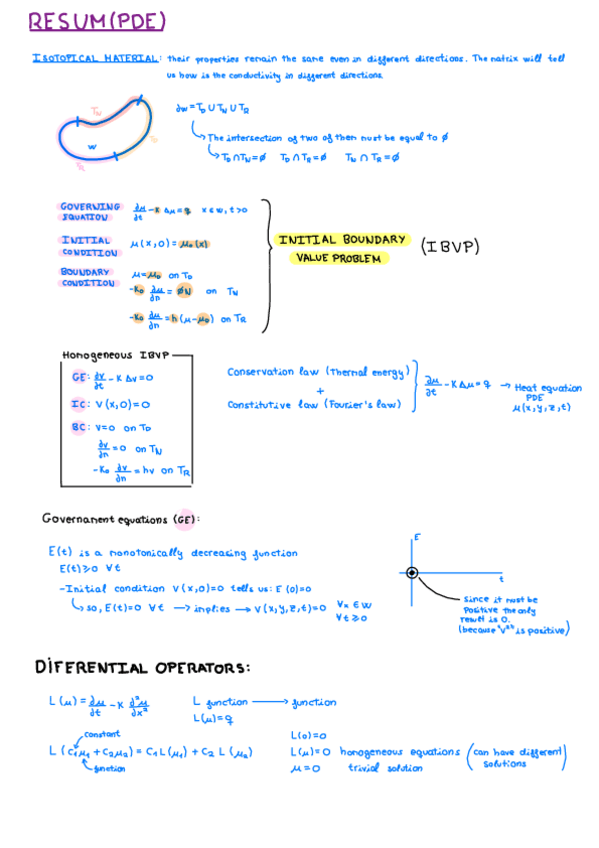 RESUM(PDE)
ISOTOPICAL MATERIAL: their properties remain the same even in different directions. The matrix will tell
us how is the conductivity in different directions.
TN
∂w = TD ∪ TN ∪ TR
w
The intersection of two of then must be equal to ∅
TD ∩ TN = ∅ TD ∩ TR = ∅ TN ∩ TR = ∅
GOVERNING EQUATION ∂μ/∂t - K Δμ = q x ∈ w, t > 0
INITIAL CONDITION μ(x,0) = μ0(x)
BOUNDARY CONDITION μ = μD on TD
-K0 ∂μ/∂n = ∅N on TN
-K0 ∂μ/∂n = h(μ-μD) on TR
INITIAL BOUNDARY
VALUE PROBLEM
(IBVP)
Homogeneous IBVP
GE: ∂v/∂t - K Δv = 0
IC: V(x,0) = 0
BC: V=0 on TD
∂v/∂n = 0 on TN
-K0 ∂v/∂n = hv on TR
Conservation law (Thermal energy)
+
Constitutive law (Fourier's law)
∂μ/∂t - K Δμ = q → Heat equation
PDE
μ(x,y,z,t)
Governanent equations (GE):
E(t) is a monotonically decreasing function
E(t) ≥ 0 ∀t
-Initial condition V(x,0)=0 tells us: E(0)=0
so, E(t)=0 ∀t → implies → V(x,y,z,t)=0 ∀x ∈ w
∀t ≥ 0
E
t
Since it must be
Positive the only
result is 0.
(because is positive)
DIFERENTIAL OPERATORS:
L(μ) = ∂μ/∂t - K ∂²μ/∂x²
L function → function
L(μ) = q
constant
L(C1μ1 + C2μ2) = C1L(μ1) + C2 L(μ2)
function
L(0)=0
L(μ)=0 homogeneous equations (can have different solutions)
μ=0 trivial solution